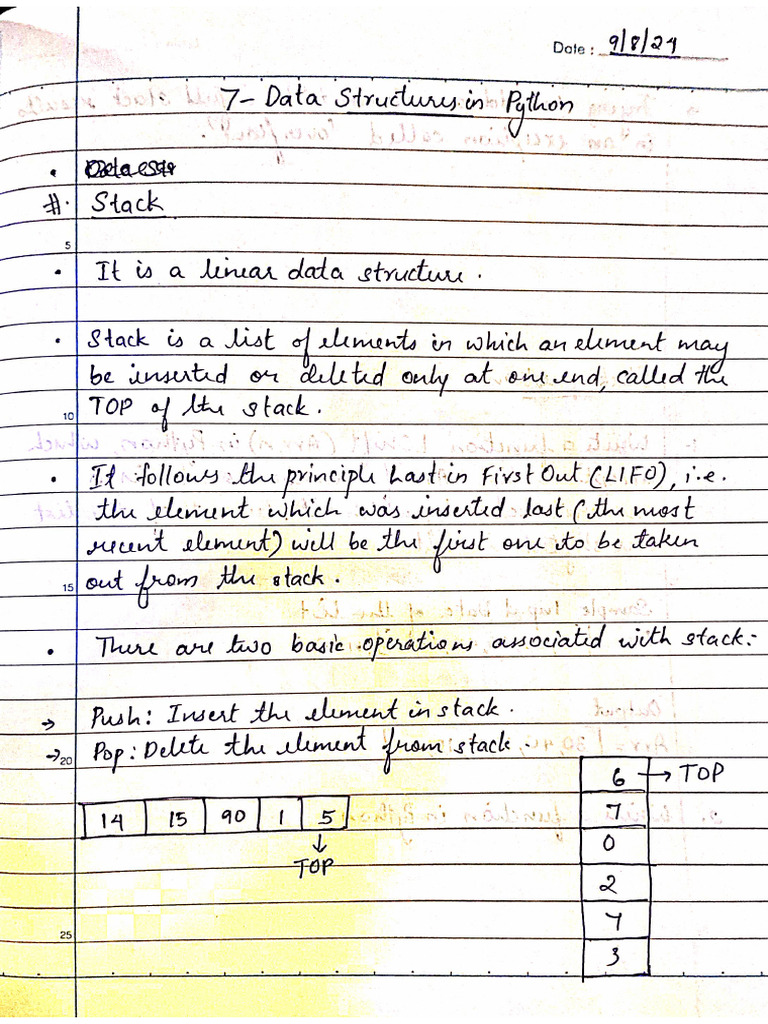 Date: 9/8/24
7- Data Structures in Python
#. Stack
5
• It is a linear data structure.
• Stack is a list of elements in which an element may
be inserted or deleted only at one end, called the
10 TOP of the stack.
• It follows the principle Last in First Out (LIFO), i.e.
the element which was inserted last (the most
recent element) will be the first one to be taken
15 out from the stack.
• There are two basic operations associated with stack:-
→ Push: Insert the element in stack.
→ 20 Pop: Delete the element from stack.
6 → TOP
14 15 90 1 5
7
0
↓
TOP
2
4
25
3